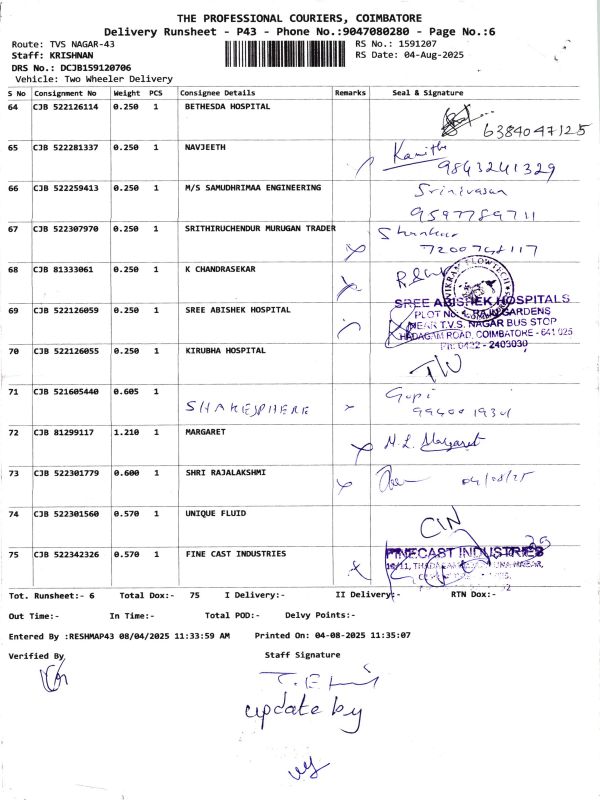 THE PROFESSIONAL COURIERS, COIMBATORE
Delivery Runsheet - P43 - Phone No.:9047080280 - Page No.:6
Route: TVS NAGAR-43 RS No.: 1591207
Staff: KRISHNAN RS Date: 04-Aug-2025
DRS No.: DCJB159120706
Vehicle: Two Wheeler Delivery
S No Consignment No Weight PCS Consignee Details Remarks Seal & Signature
64 CJB 522126114 0.250 1 BETHESDA HOSPITAL
6384047125
65 CJB 522281337 0.250 1 NAVJEETH Kamitha
9843241329
66 CJB 522259413 0.250 1 M/S SAMUDHRIMAA ENGINEERING Srinivasan
9597789711
67 CJB 522307970 0.250 1 SRITHIRUCHENDUR MURUGAN TRADER
7200748117
68 CJB 81333061 0.250 1 K CHANDRASEKAR
VIKRAM FLOWTECH
69 CJB 522126059 0.250 1 SREE ABISHEK HOSPITAL
SREE ABISHEK HOSPITALS
PLOT No. 4, RAJU GARDENS
NEAR T.V.S. NAGAR BUS STOP
ROAD, COIMBATORE - 641 025
PH: 0422 - 2403030
70 CJB 522126055 0.250 1 KIRUBHA HOSPITAL
71 CJB 521605440 0.605 1 SHAKESPHERE Gopi
72 CJB 81299117 1.210 1 MARGARET M.L. Margaret
73 CJB 522301779 0.600 1 SHRI RAJALAKSHMI 04/08/25
74 CJB 522301560 0.570 1 UNIQUE FLUID CIN
75 CJB 522342326 0.570 1 FINE CAST INDUSTRIES
FINECAST INDUSTRIES
Tot. Runsheet:- 6 Total Dox:- 75 I Delivery:- II Delivery:- RTN Dox:-
Out Time:- In Time:- Total POD:- Delvy Points:-
Entered By :RESHMAP43 08/04/2025 11:33:59 AM Printed On: 04-08-2025 11:35:07
Verified By Staff Signature
update by